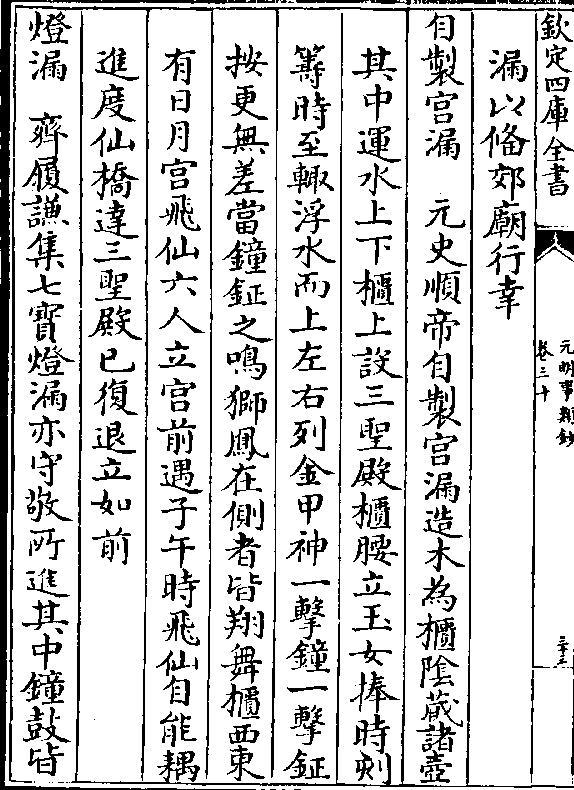 欽定四庫全書
元明事類鈔
卷三十
三十三
漏以備郊廟行幸
自製宫漏　元史順帝自製宫漏造木為櫃陰藏諸壺
其中運水上下櫃上設三聖殿櫃腰立玉女捧時刻
籌時至輙浮水而上左右列金甲神一擊鐘一擊鉦
按更無差當鐘鉦之鳴獅鳳在側者皆翔舞櫃西東
有日月宫飛仙六人立宫前遇子午時飛仙自能耦
進度仙橋達三聖殿已復退立如前
燈漏　齊履謙集七寶燈漏亦守敬所進其中鐘鼓皆